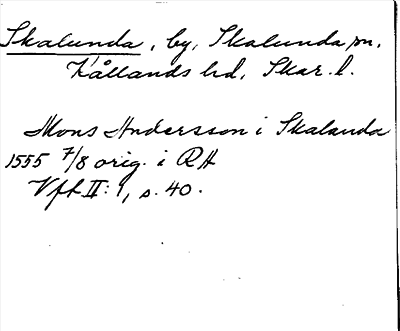 Skalunda, by, Skalunda sn.
Kållands hd, Skar. l.
Mons Andersson i Skalanda
1555 7/8 orig. i RA
Vft II: 1, s. 40.